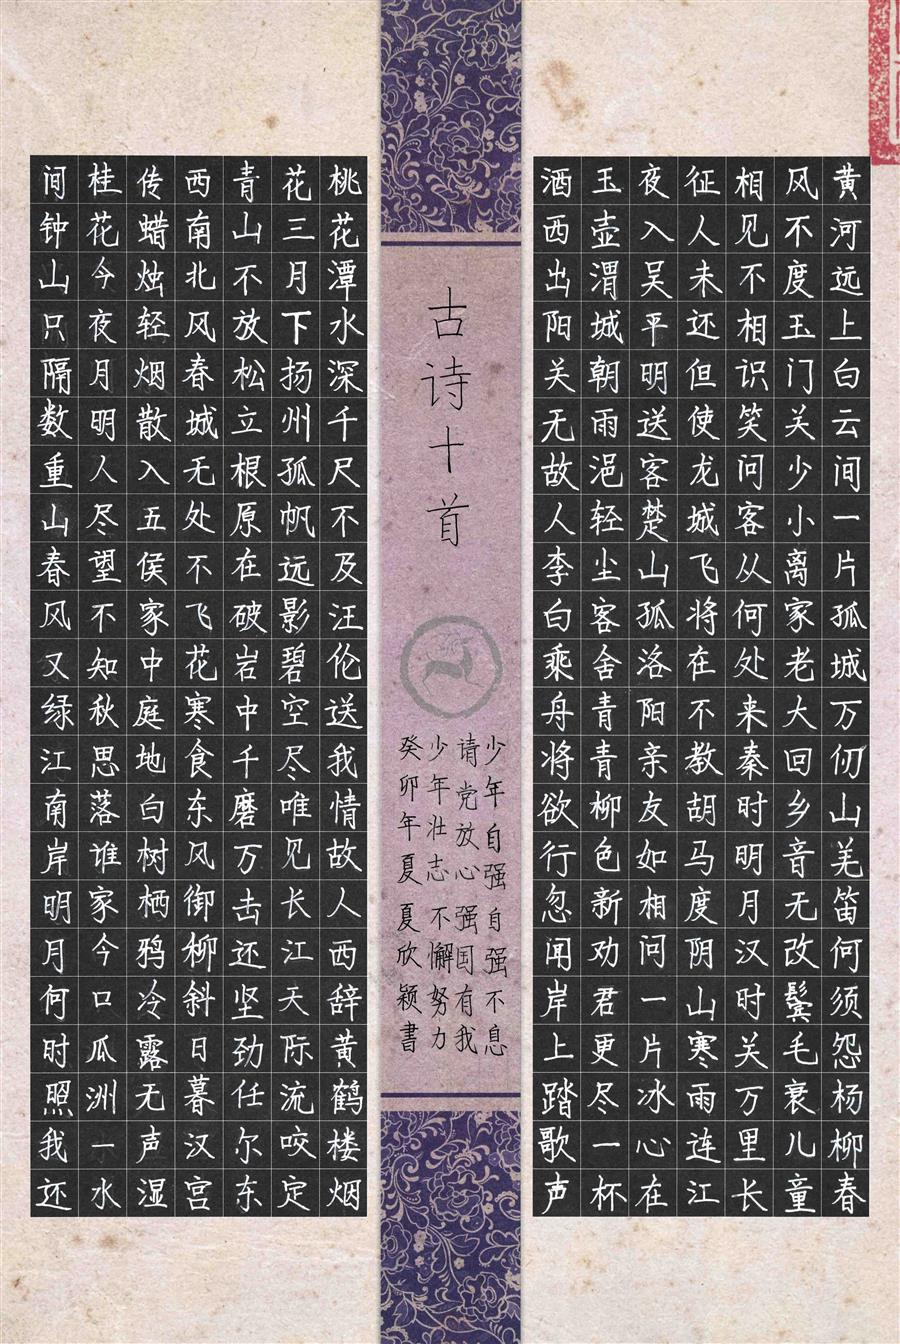 黄河远上白云间一片孤城万仞山羌笛何须怨杨柳春
风不度玉门关少小离家老大回乡音无改鬓毛衰儿童
相见不相识笑问客从何处来秦时明月汉时关万里长
征人未还但使龙城飞将在不教胡马度阴山寒雨连江
夜入吴平明送客楚山孤洛阳亲友如相问一片冰心在
玉壶渭城朝雨浥轻尘客舍青青柳色新劝君更尽一杯
酒西出阳关无故人李白乘舟将欲行忽闻岸上踏歌声
古诗十首
少年自强 自强不息
请党放心 强国有我
少年壮志 不懈努力
癸卯年夏 夏欣颖書
桃花潭水深千尺不及汪伦送我情故人西辞黄鹤楼烟
花三月下扬州孤帆远影碧空尽唯见长江天际流咬定
青山不放松立根原在破岩中千磨万击还坚劲任尔东
西南北风春城无处不飞花寒食东风御柳斜日暮汉宫
传蜡烛轻烟散入五侯家中庭地白树栖鸦冷露无声湿
桂花今夜月明人尽望不知秋思落谁家今口瓜洲一水
间钟山只隔数重山春风又绿江南岸明月何时照我还